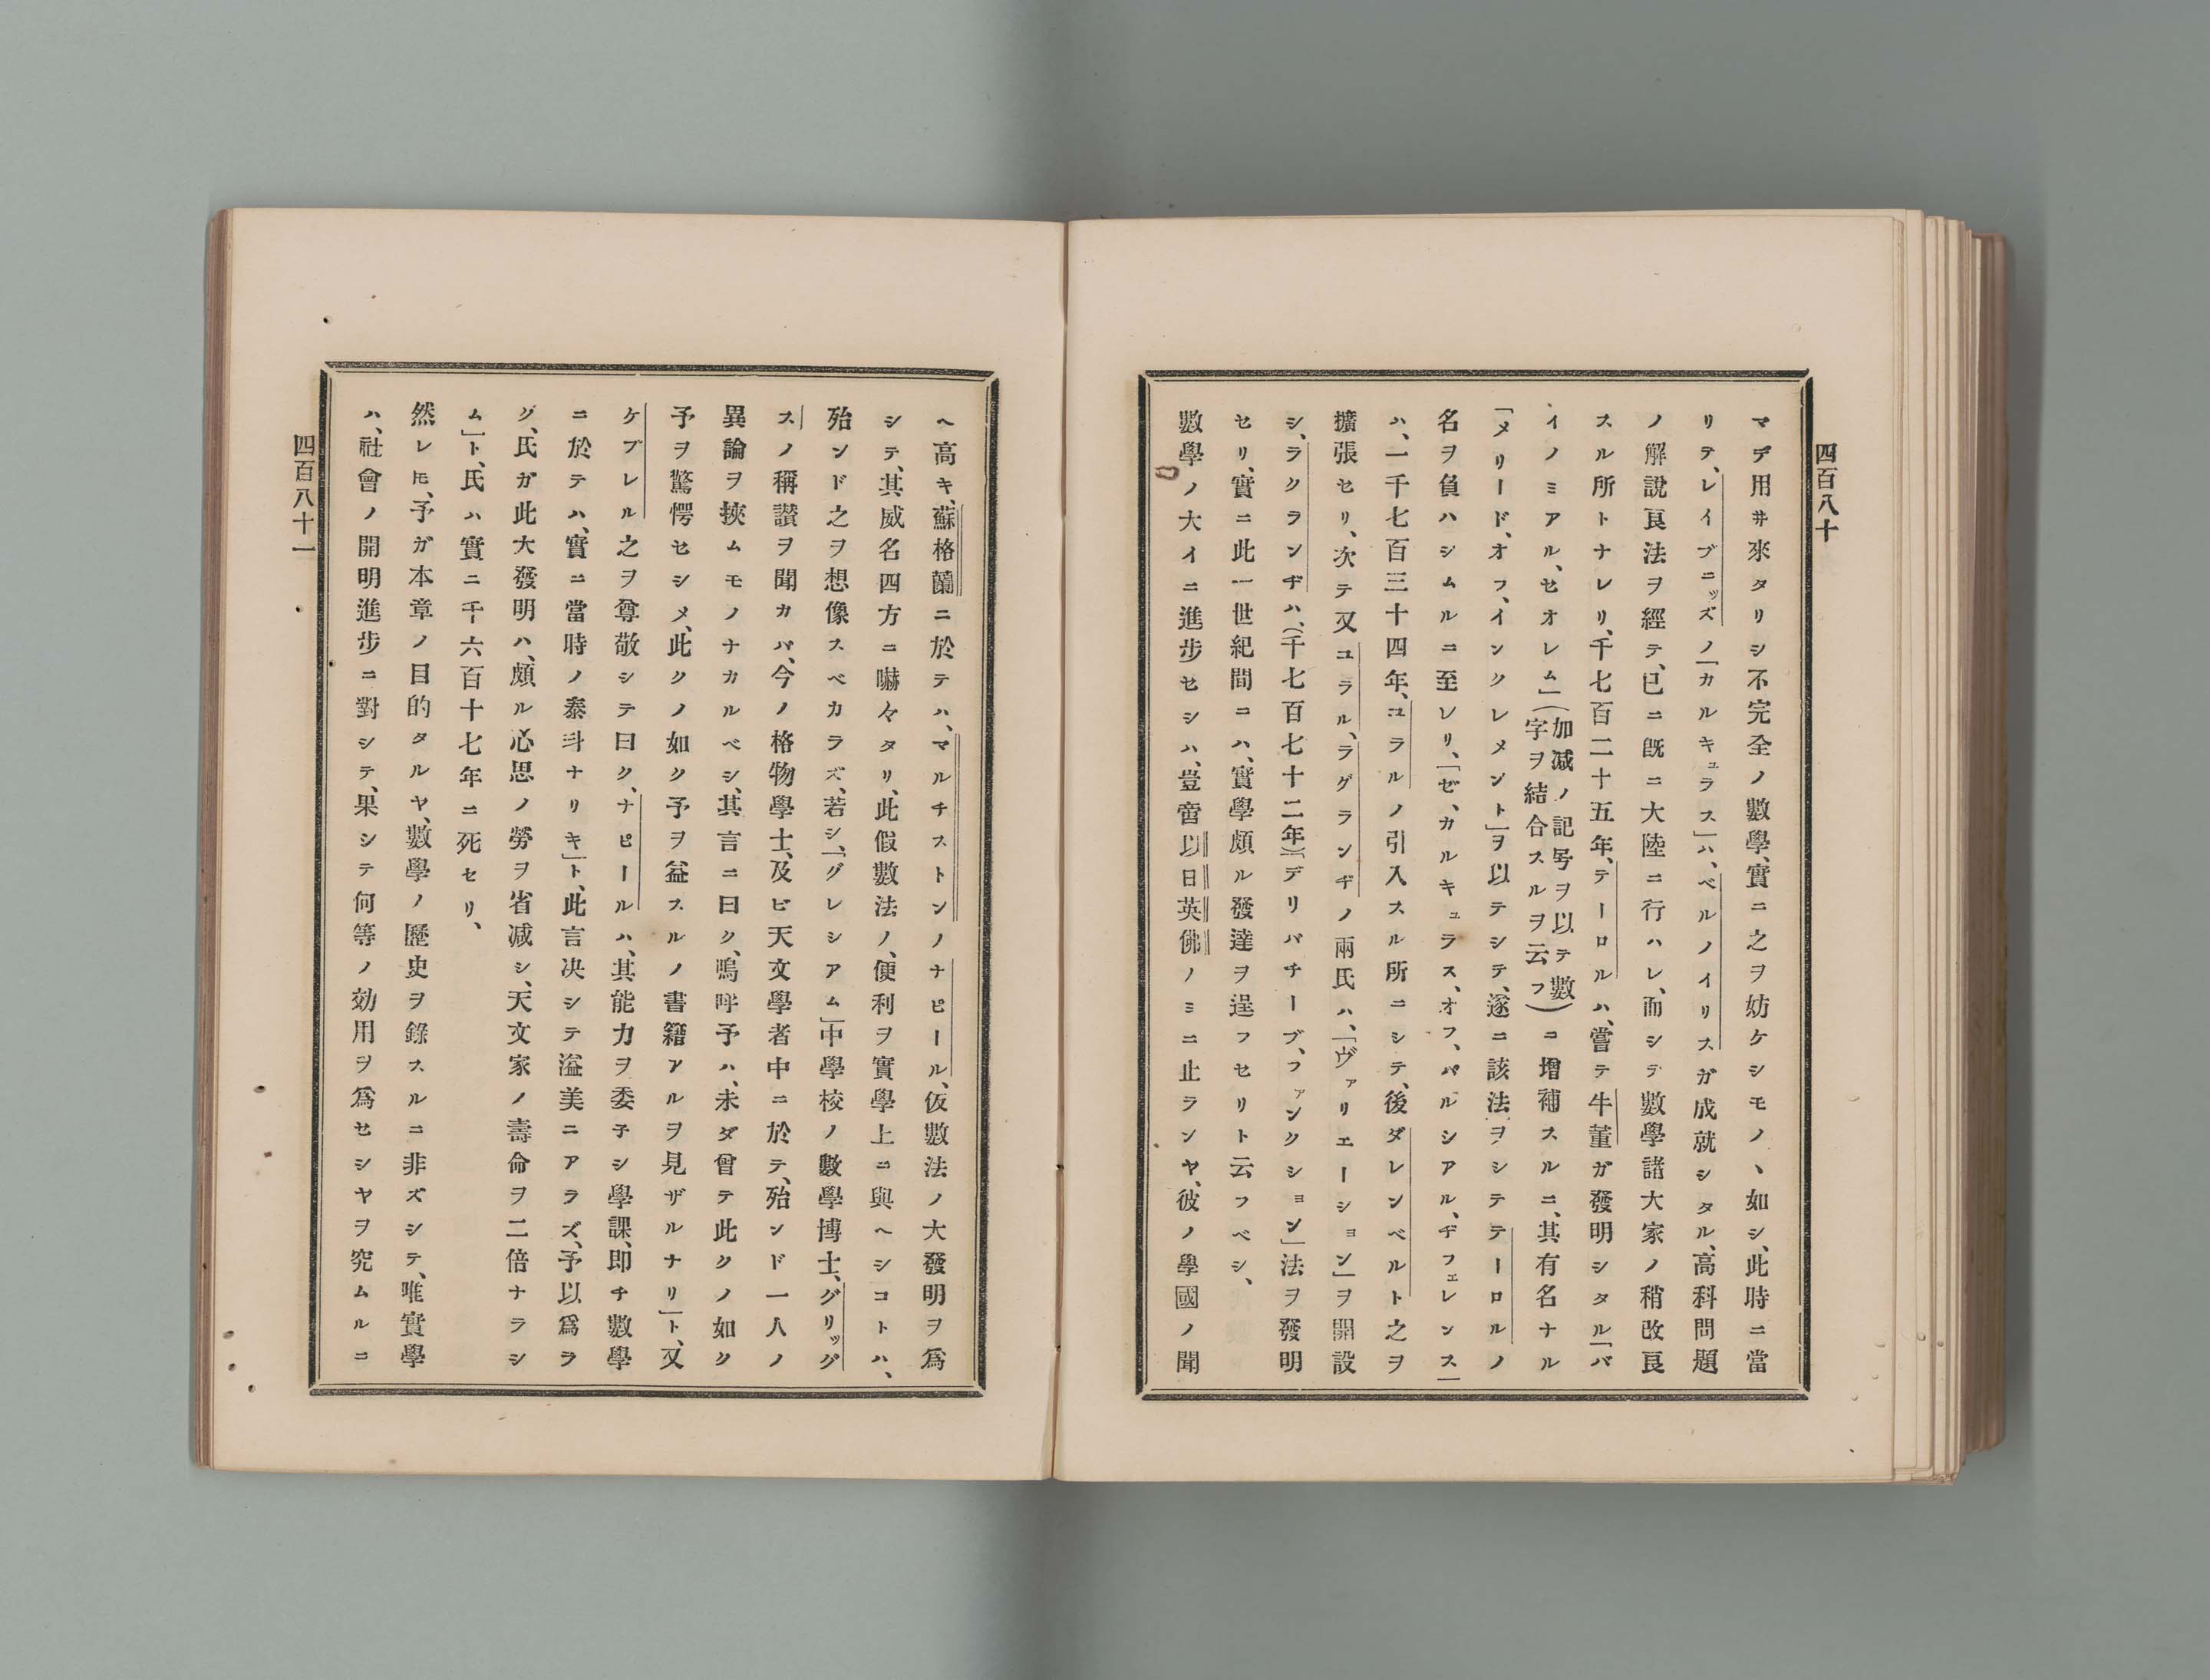 四百八十
マデ用ヰ來タリシ不完全ノ數學、實ニ之ヲ妨ケシモノヽ如シ、此時ニ當
リテ、レイブニッズノ「カルキュラス」ハ、ベルノイリスガ成就シタル、高科問題
ノ解說良法ヲ經テ、已ニ既ニ大陸ニ行ハレ、而シテ數學諸大家ノ稍改良
スル所トナレリ、千七百二十五年、テーロルハ、嘗テ牛董ガ發明シタル「バ
イノミアル、セオレム」(加減ノ記号ヲ以テ數字ヲ結合スルヲ云フ)ニ增補スルニ、其有名ナル
「メリード、オフ、インクレメント」ヲ以テシテ、遂ニ該法ヲシテテーロルノ
名ヲ負ハシムルニ至レリ、「ゼ、カルキュラス、オフ、パルシアル、ヂフェレンス」
ハ、一千七百三十四年、ユラルノ引入スル所ニシテ、後ダレンベルト之ヲ
擴張セリ、次テ又ユラル、ラグランヂノ兩氏ハ、「ヴァリエーション」ヲ開設
シ、ラクランヂハ、(千七百七十二年)「デリバチーブ、ファンクション」法ヲ發明
セリ、實ニ此一世紀間ニハ、實學頗ル發達ヲ逞フセリト云フベシ、
數學ノ大イニ進步セシハ、豈啻以日英佛ノミニ止ランヤ、彼ノ學國ノ聞
ヘ高キ、蘇格蘭ニ於テハ、マルチストンノナピール、仮數法ノ大發明ヲ爲
シテ、其威名四方ニ嚇々タリ、此假數法ノ、便利ヲ實學上ニ與ヘシコトハ、
殆ンド之ヲ想像スベカラズ、若シ、「グレシアム」中學校ノ數學博士、グリッグ
スノ稱讃ヲ聞カバ、今ノ格物學士、及ビ天文學者中ニ於テ、殆ンド一人ノ
異論ヲ挾ムモノナカルベシ、其言ニ曰ク、嗚呼予ハ、未ダ曾テ此クノ如ク
予ヲ驚愕セシメ、此クノ如ク予ヲ益スルノ書籍アルヲ見ザルナリ」ト、又
ケブレル之ヲ尊敬シテ曰ク、ナピールハ、其能力ヲ委子シ學課、即チ數學
ニ於テハ、實ニ當時ノ泰斗ナリキ」ト、此言决シテ溢美ニアラズ、予以爲ラ
グ、氏ガ此大發明ハ、頗ル心思ノ勞ヲ省減シ、天文家ノ壽命ヲ二倍ナラシ
ム」ト、氏ハ實ニ千六百十七年ニ死セリ、
然レ𪜈、予ガ本章ノ目的タルヤ、數學ノ歷史ヲ錄スルニ非ズシテ、唯實學
ハ、社會ノ開明進步ニ對シテ、果シテ何等ノ効用ヲ爲セシヤヲ究ムルニ
四百八十一